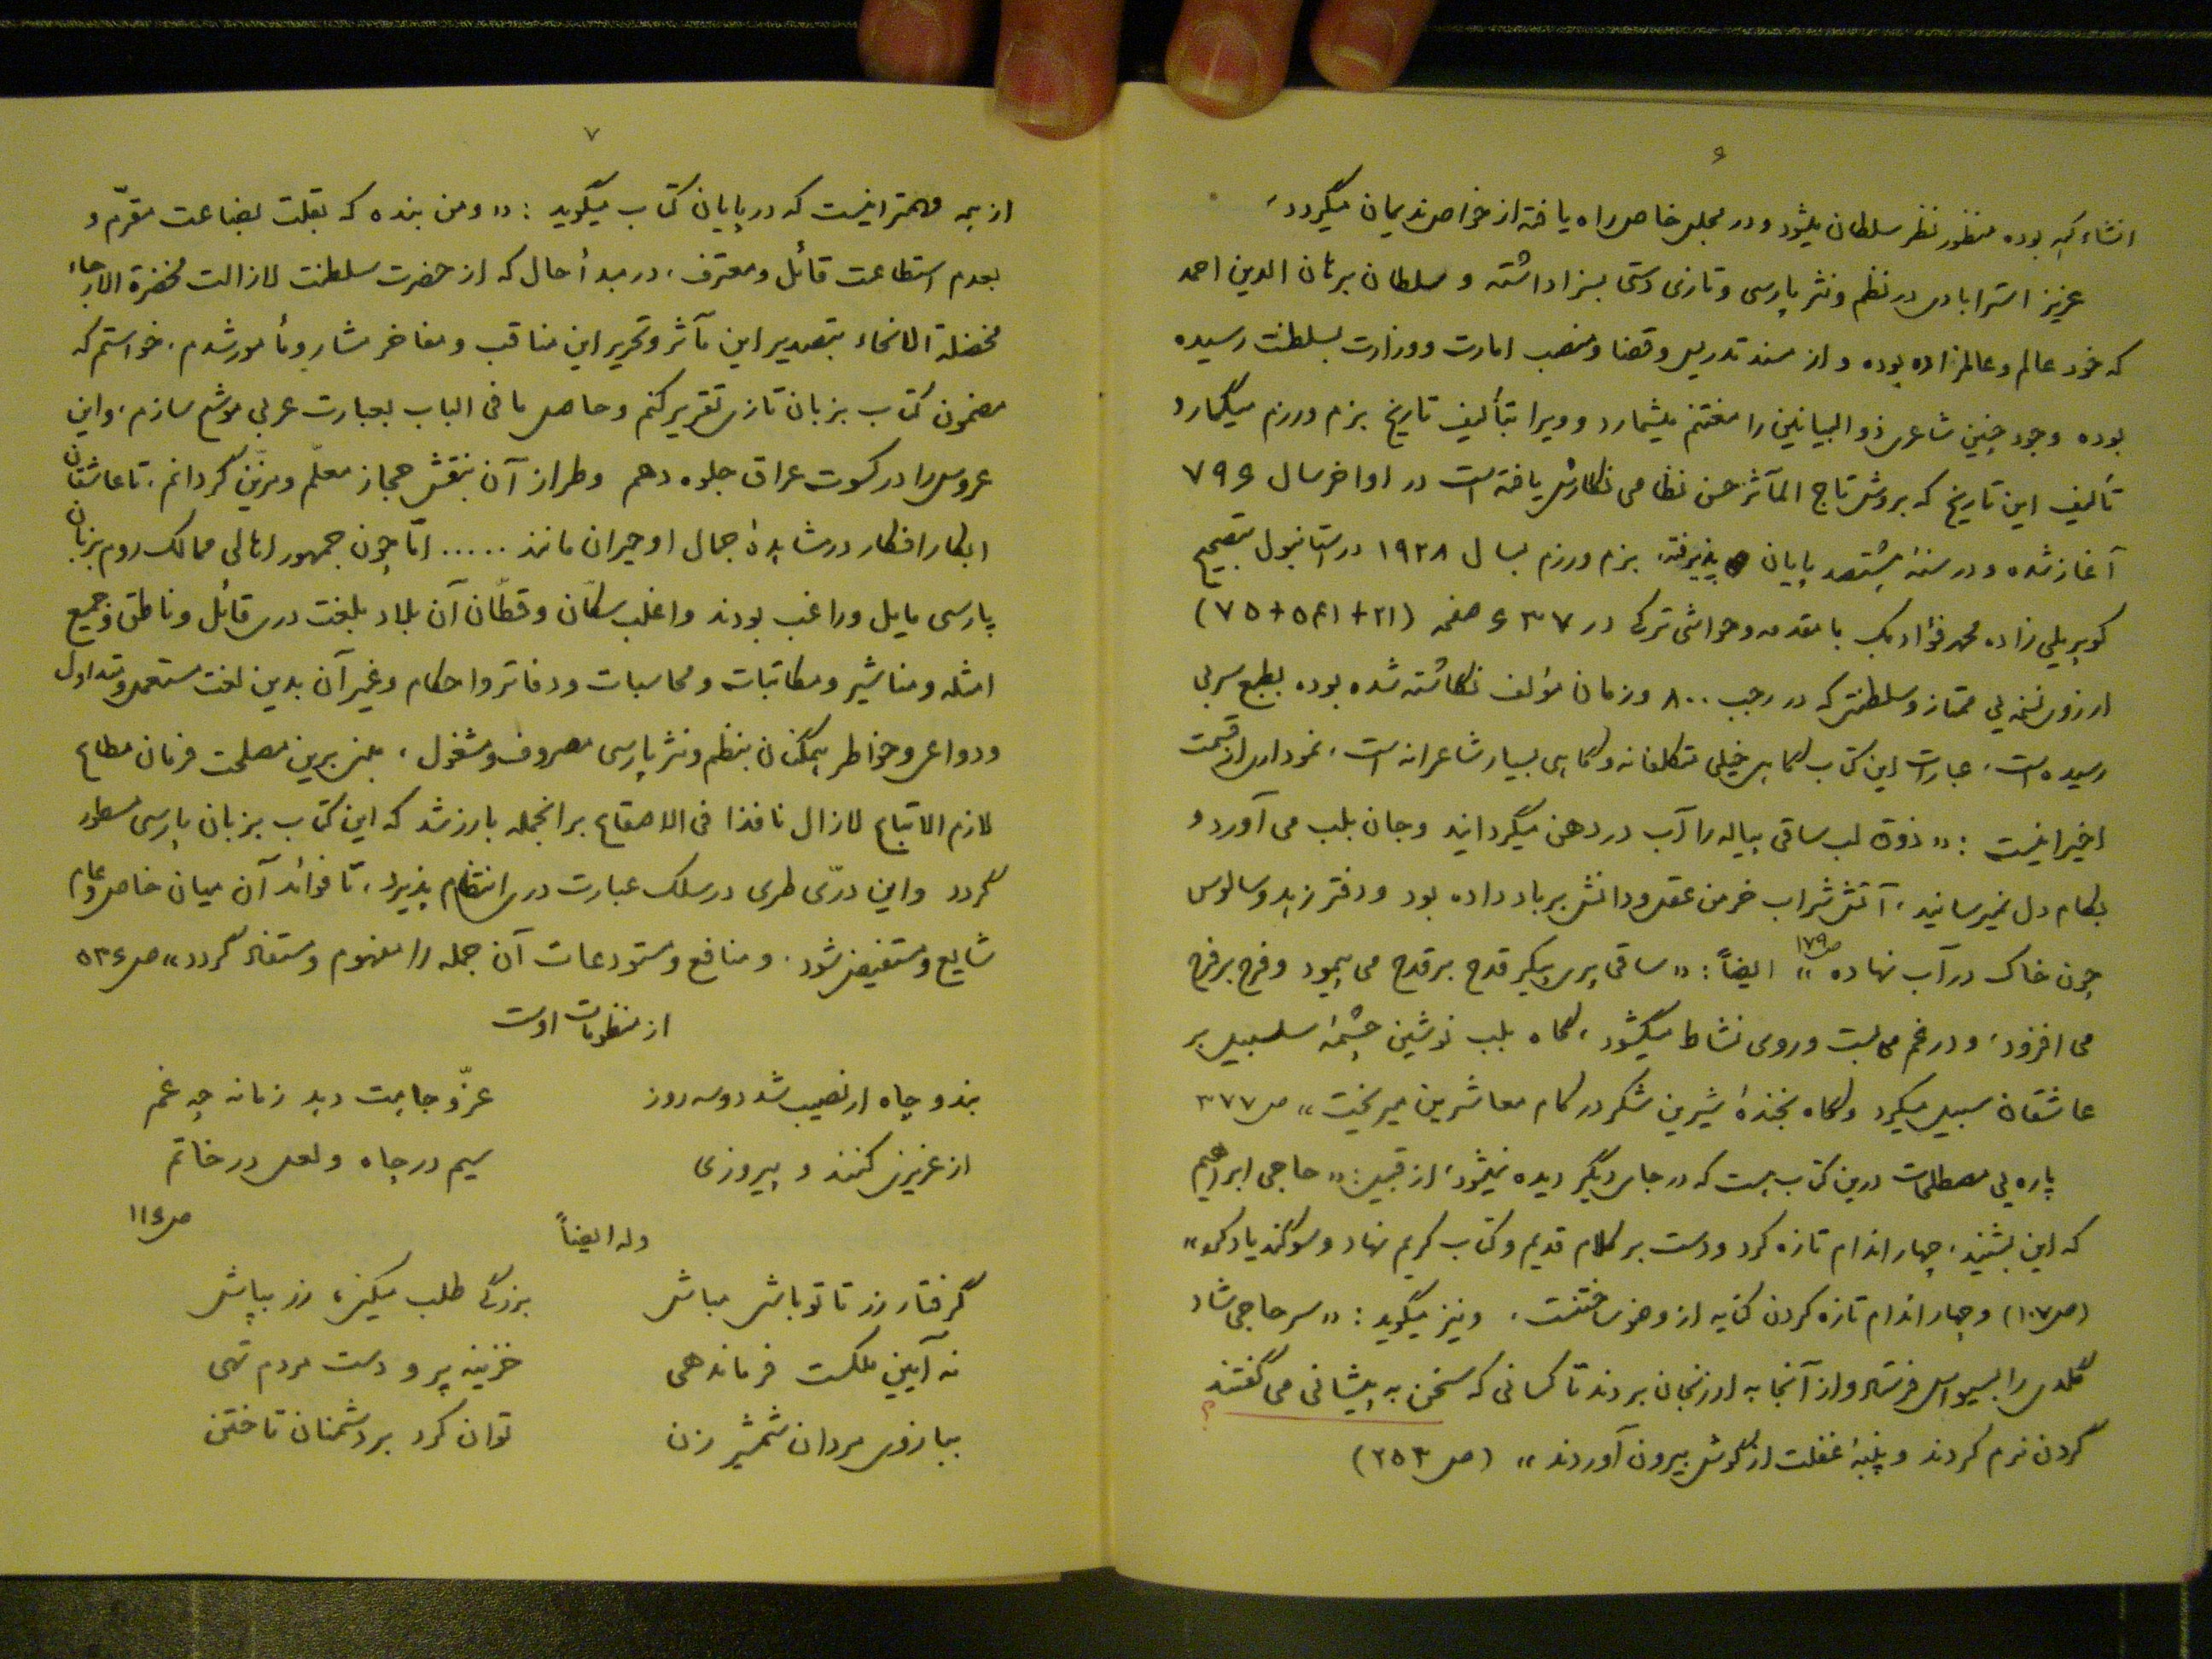 ۶
انشاء کرده بوده منظور نظر سلطان میشود و در مجلس خاص راه یافته از خواص ندیمان میگردد،
عزیز استرابادی در نظم و نثر پارسی و تازی دستی بسزا داشته و سلطان برهان الدین احمد
که خود عالم و عالمزاده بوده و از مسند تدریس و قضا و منصب امارت و وزارت بسلطنت رسیده
بوده وجود چنین شاعر ذو البیانین را مغتنم میشمارد و ویرا بتألیف تاریخ بزم و رزم میگمارد
تألیف این تاریخ که بروش تاج المآثر حسن نظامی نگارش یافته است در اواخر سال ۷۹۶
آغاز شده و در سنهٔ هشتصد پایان پذیرفته، بزم و رزم بسال ۱۹۲۸ در استانبول بتصحیح
کوپریلی زاده محمد فؤاد بک با مقدمه و حواشی ترکی در ۶۳۷ صفحه (۲۱ + ۵۴۱ + ۷۵)
از روی نسخه یی ممتاز و سلطنتی که در رجب ۸۰۰ و زمان مؤلف نگاشته شده بوده بطبع سربی
رسیده است، عبارات این کتاب گاهی خیلی متکلفانه و گاهی بسیار شاعرانه است، نموداری از قسمت
اخیر اینست : « ذوق لب ساقی پیاله را آب در دهن میگردانید و جان بلب می آورد و
بکام دل نمیرسانید، آتش شراب خرمن عقل و دانش بر باد داده بود و دفتر زهد و سالوس
چون خاک در آب نهاده » ص۱۷۹ ایضاً : « ساقی پری پیکر قدح بر قدح می پیمود و فرح بر فرح
می افزود، و در غم می بست و روی نشاط میگشود، گاه بلب نوشین چشمهٔ سلسبیل بر
عاشقان سبیل میکرد و گاه بخندهٔ شیرین شکر در کام معاشرین میریخت » ص ۳۷۷
پاره یی مصطلحات درین کتاب هست که در جای دیگر دیده نمیشود، از قبیل: « حاجی ابراهیم
که این بشنید، چهار اندام تازه کرد و دست بر کلام قدیم و کتاب کریم نهاد و سوگند یاد کرد »
(ص ۱۰۷) و چهار اندام تازه کردن کنایه از وضو ساختنست، و نیز میگوید : « سر حاجی شاد
گلدی را بسیواس فرستاد و از آنجا به ارزنجان بردند تا کسانی که سخن به پیشانی می گفتند
؟
گردن نرم کردند و پنبهٔ غفلت از گوش بیرون آوردند » (ص ۲۵۳)
۷
از همه مهمتر اینست که در پایان کتاب میگوید : « و من بنده که بقلت بضاعت مقرّم و
بعدم استطاعت قائل و معترف، در مبدأ حال که از حضرت سلطنت لا زالت مخضرة الارجاء
مخضلة الانحاء بتصدیر این مآثر و تحریر این مناقب و مفاخر مشار و مأمور شدم، خواستم که
مضمون کتاب بزبان تازی تقریر کنم و حاصل ما فی الباب بعبارت عربی موشح سازم، و این
عروس را در کسوت عراق جلوه دهم و طراز آن بنقش حجاز معلّم و مزیّن گردانم، تا عاشقان
ابکار افکار در مشاهدهٔ جمال او حیران مانند ..... امّا چون جمهور اهالی ممالک روم بزبان
پارسی مایل و راغب بودند و اغلب سکّان و قطّان آن بلاد بلغت دری قائل و ناطق و جمیع
امثله و مناشیر و مکاتبات و محاسبات و دفاتر و احکام و غیر آن بدین لغت مستعمل و متداول
و دواعی و خواطر همگنان بنظم و نثر پارسی مصروف و مشغول، مبنی برین مصلحت فرمان مطاع
لازم الاتباع لا زال نافذا فی الاصقاع بر انجمله بارز شد که این کتاب بزبان پارسی مسطور
گردد و این درّی طری در سلک عبارت دری انتظام پذیرد، تا فوائد آن میان خاص و عام
شایع و مستفیض شود، و منافع و مستودعات آن جمله را مفهوم و مستفاد گردد » ص ۵۳۶
از منظومات اوست
بند و چاه ار نصیب شد دو سه روز عزّ و جاهت دهد زمانه چه غم
از عزیزی کنند و پیروزی سیم در چاه و لعل در خاتم
ص ۱۱۶
وله ایضاً
گرفتار زر تا تو باشی مباش بزرگی طلب میکنی، زر بپاش
نه آیین ملکست فرماندهی خزینه پر و دست مردم تهی
ببازوی مردان شمشیر زن توان کرد بر دشمنان تاختن